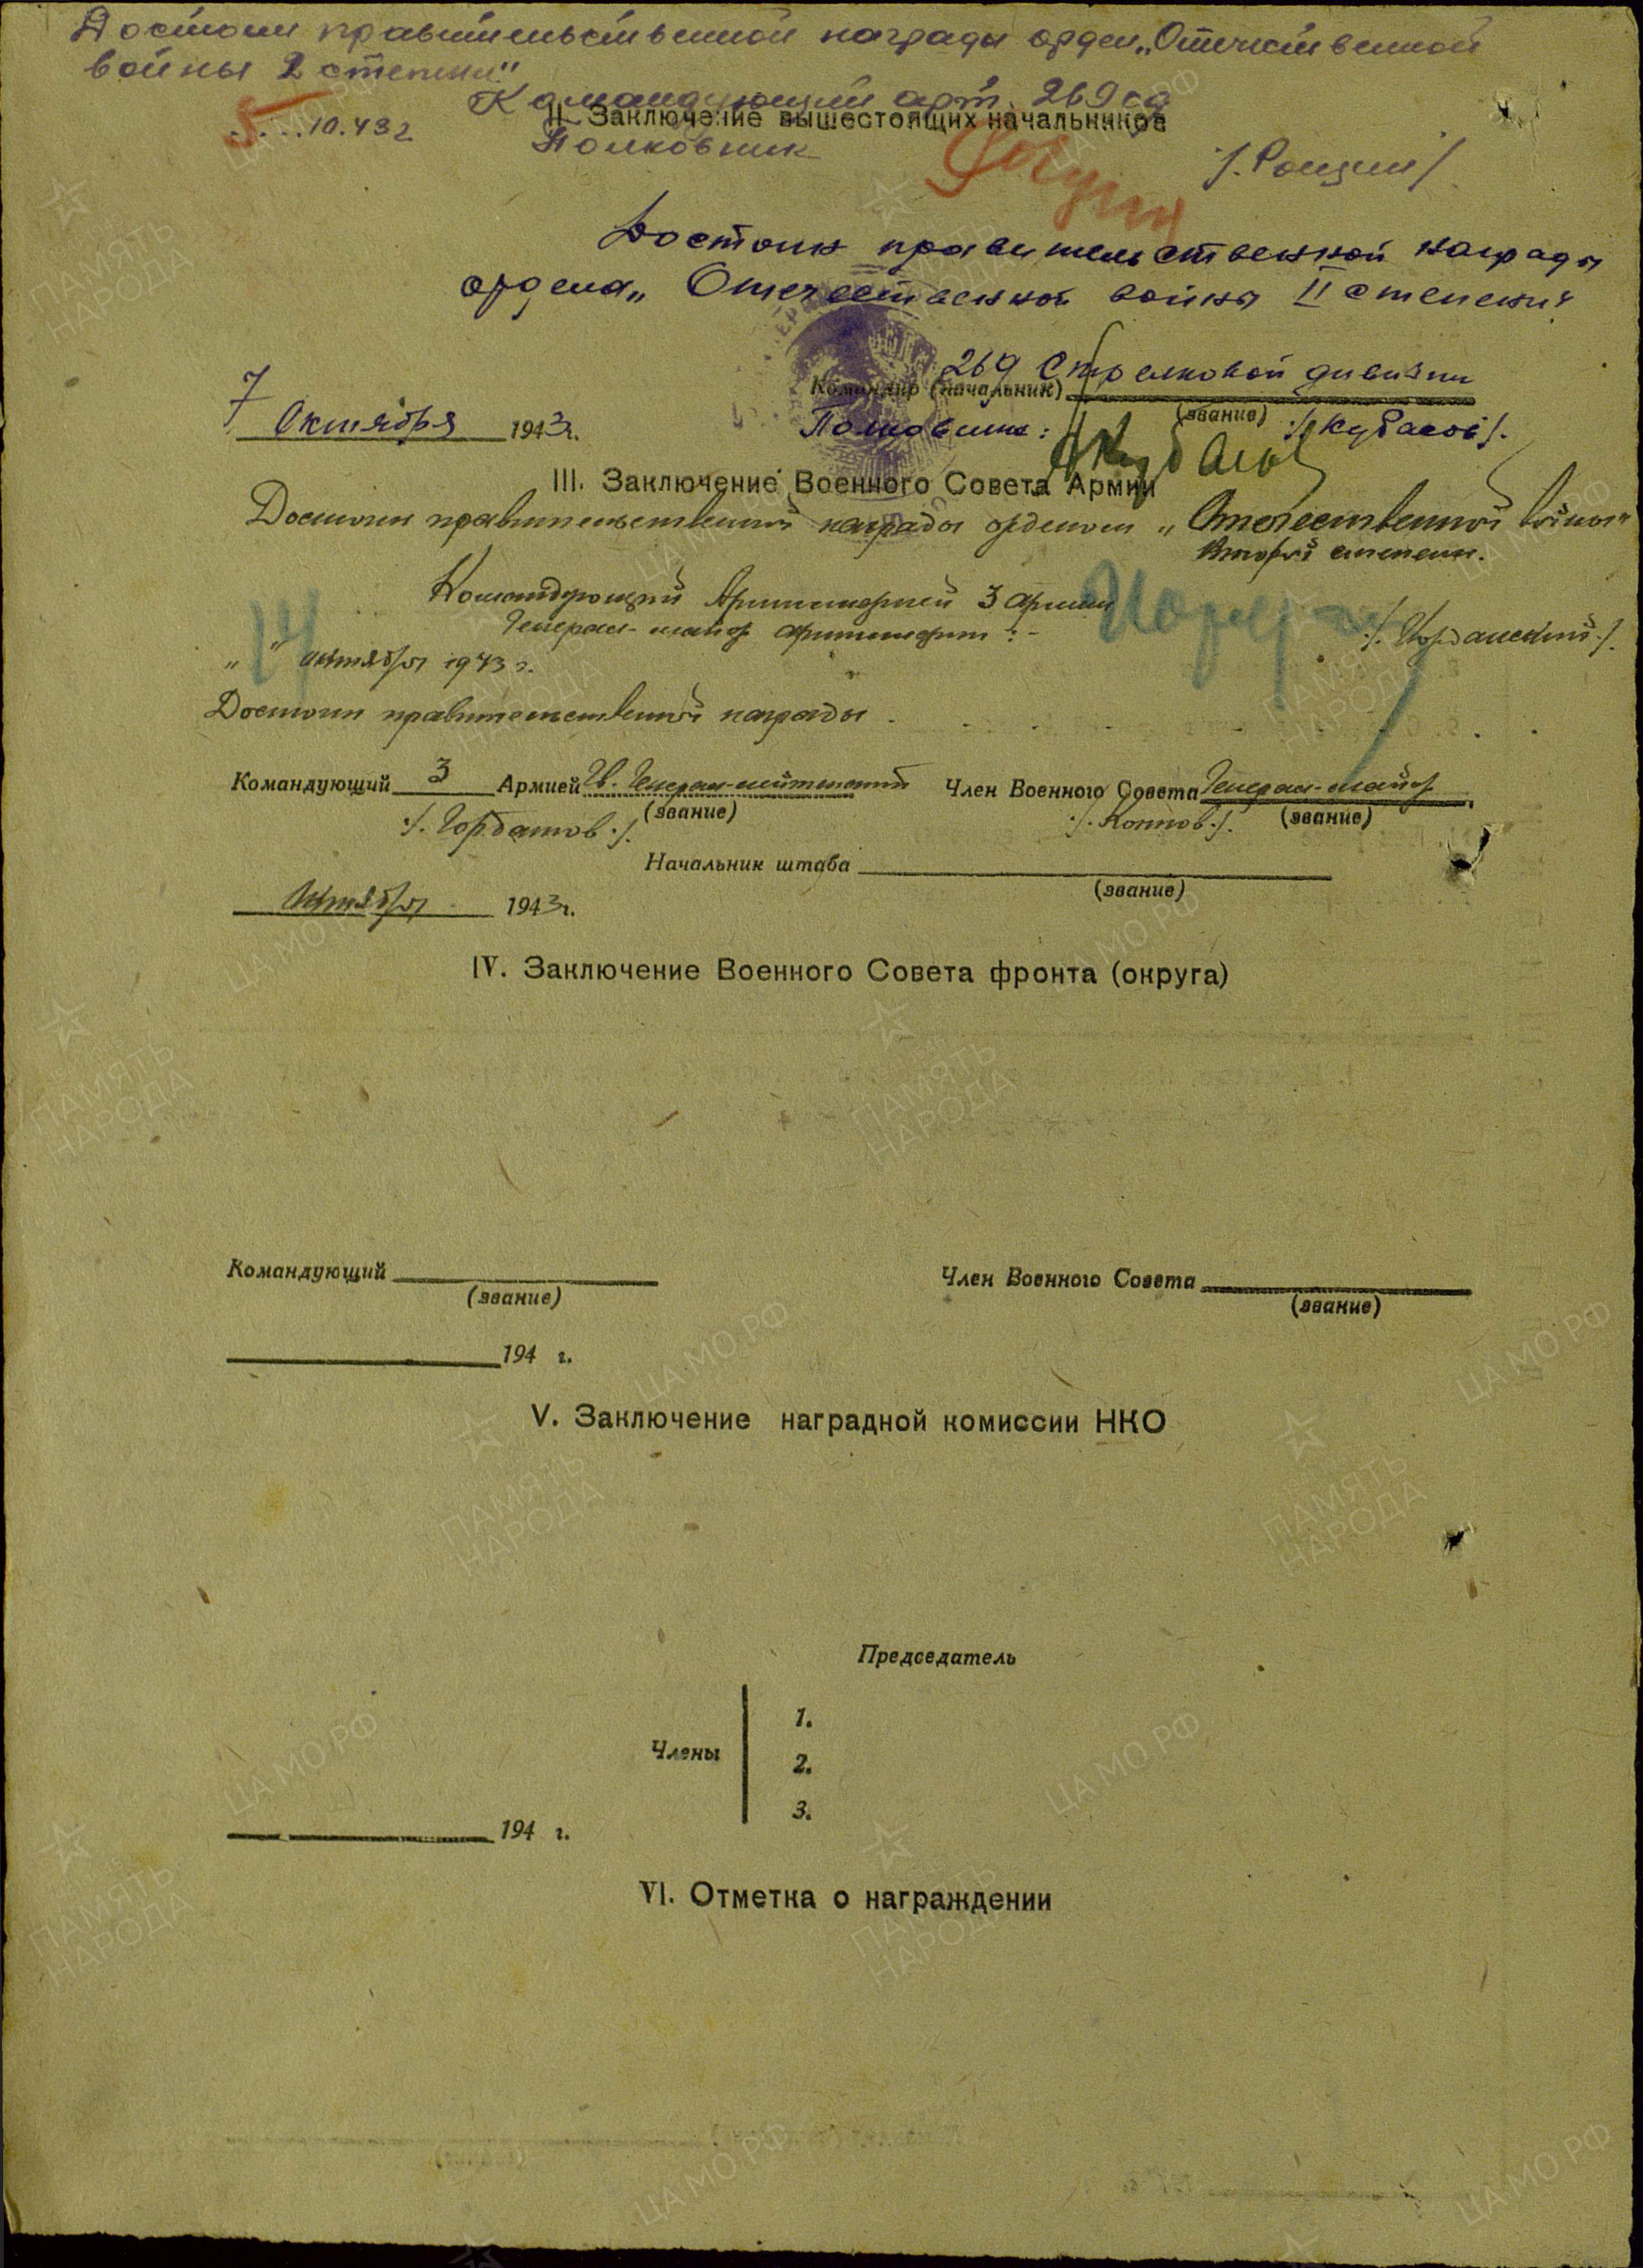 Достоин правительственной награды орден „Отечественной
войны 2 степени"
Командующий арт. 269 сд
II. Заключение вышестоящих начальников
5.10.43 г
Полковник /Рощин/
Достоин правительственной награды
ордена „Отечественной войны II степени"
269 Стрелковой дивизии
Командир (начальник)
(звание)
7 Октября 1943 г.
Полковник: /Кубасов/.
III. Заключение Военного Совета Армии
Достоин правительственной награды орденом „Отечественной войны"
второй степени.
Командующий Артиллерией 3 армии
Генерал-майор артиллерии:- /.Иорданский./
„14" октября 1943 г.
Достоин правительственной награды.
Командующий 3 Армией Гв. Генерал-лейтенант Член Военного Совета Генерал-майор
(звание) (звание)
/.Горбатов./ /.Коннов./
Начальник штаба
(звание)
Октября 1943 г.
IV. Заключение Военного Совета фронта (округа)
Командующий Член Военного Совета
(звание) (звание)
194 г.
V. Заключение наградной комиссии НКО
Председатель
1.
Члены 2.
3.
194 г.
VI. Отметка о награждении